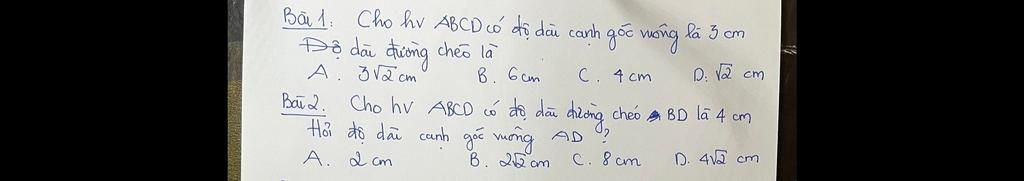 Bài 1. Cho hv ABCD có độ dài cạnh góc vuông là 3 cm
Độ dài đường chéo là
A. 3√2 cm B. 6 cm C. 4 cm D. √2 cm
Bài 2. Cho hv ABCD có độ dài đường chéo BD là 4 cm
Hỏi độ dài cạnh góc vuông AD?
A. 2 cm B. 2√2 cm C. 8 cm D. 4√2 cm